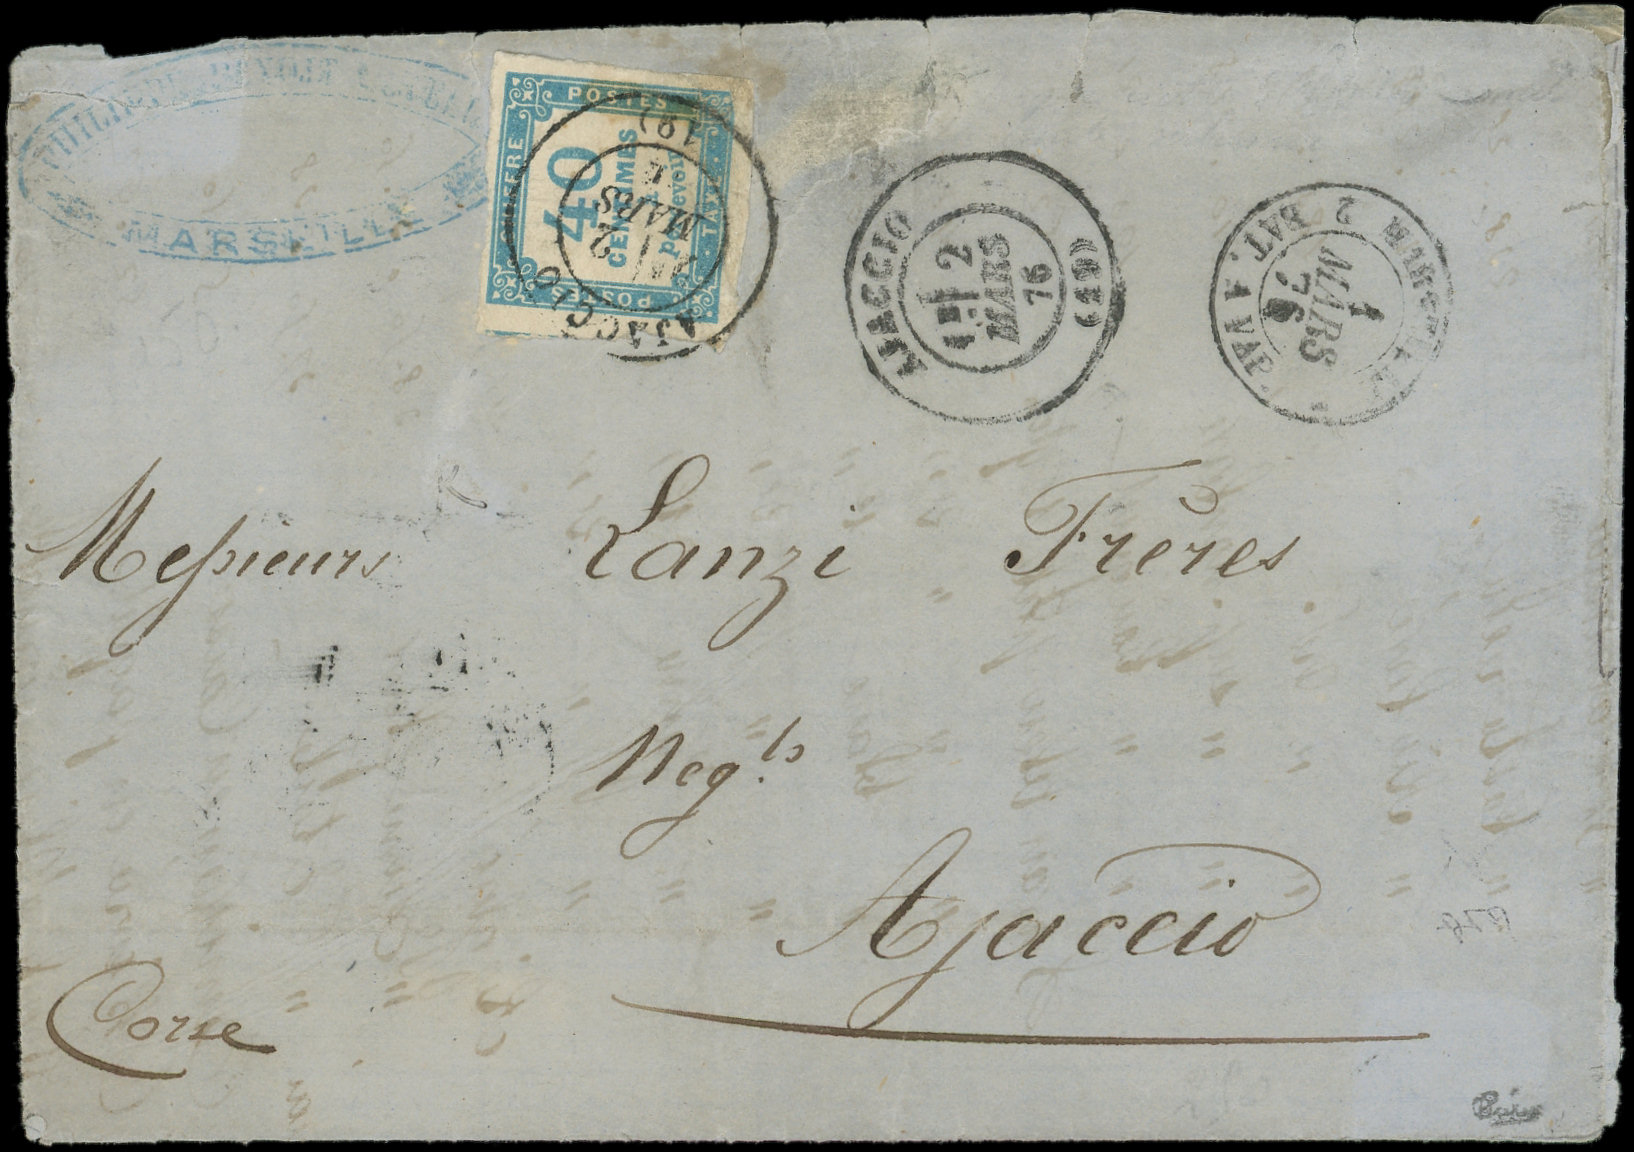 MARSEILLE
POSTES
40
CENTIMES
à
percevoir
TAXE
POSTES
AJACCIO
2
MARS
AJACCIO
2
MARS
76
(19)
MARSEILLE 2 BAT. A VAP.
1
MARS
76
Messieurs Lanzi Frères
Negts
Ajaccio
Corse